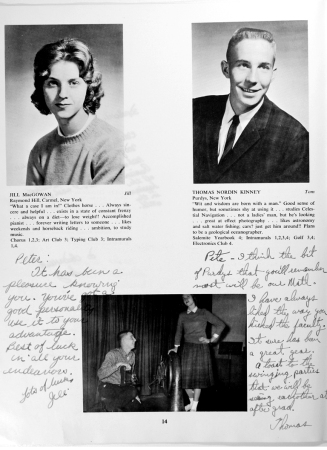 JILL MacGOWAN Jill
Raymond Hill, Carmel, New York
"What a case I am in" Clothes horse . . . Always sin-
cere and helpful . . . exists in a state of constant frenzy
. . . always on a diet—to lose weight? Accomplished
pianist . . . forever writing letters to someone . . . likes
weekends and horseback riding . . . ambition, to study
music.
Chorus 1,2,3; Art Club 3; Typing Club 3; Intramurals
1,4.
THOMAS NORDIN KINNEY Tom
Purdys, New York
"Wit and wisdom are born with a man." Good sense of
humor, but sometimes shy at using it . . . studies Celes-
tial Navigation . . . not a ladies' man, but he's looking
. . . great at effect photography . . . likes astronomy
and salt water fishing, cars? just get him around! Plans
to be a geological oceanographer.
Salmonte Yearbook 4; Intramurals 1,2,3,4; Golf 1,4;
Electronics Club 4.
Peter:
It has been a
pleasure knowing
you. You've got a
good personality
use it to your
advantage.
Best of luck
in all your
endeavors.
lots of luck
Jill
Pete - I think the bit
of Purdys that you'll remember
most will be our Math.
I have always
liked the way you
kidded the faculty.
It sure has been
a great year.
a toast to the
swinging parties
that we will be
seeing eachother at
after grad.
Thomas
14